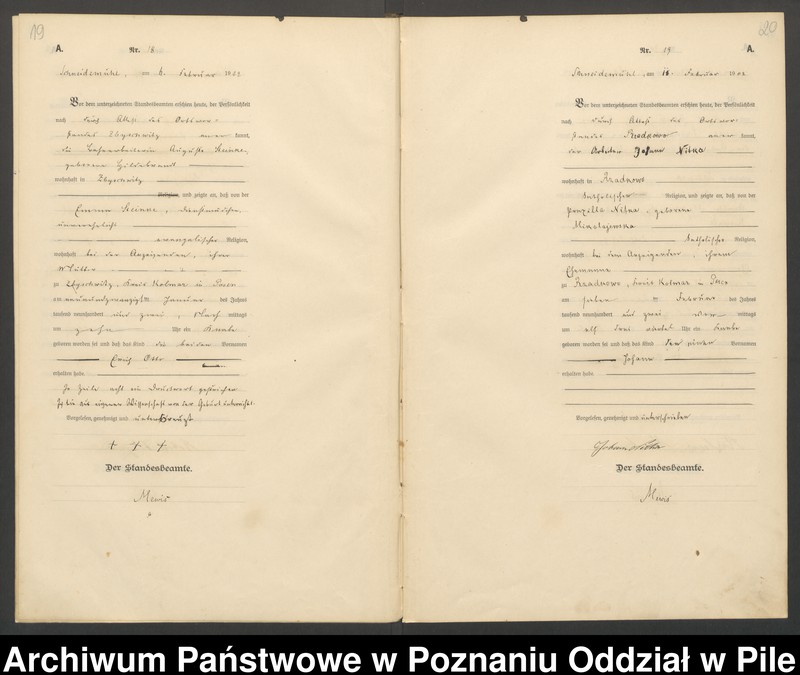 19
A.
Nr. 18
Schneidemühl, am 6. Februar 1902
Vor dem unterzeichneten Standesbeamten erschien heute, der Persönlichkeit
nach durch Attest des Ortsvor-
standes kannt,
die Auguste
geborene Hildebrandt
wohnhaft in
Religion, und zeigte an, daß von der
Emma
unverehelicht
evangelischer Religion,
wohnhaft bei der Anzeigenden, ihrer
Mutter
zu Kreis Kolmar in Posen
am neunundzwanzigsten Januar des Jahres
tausend neunhundert und zwei, Nachmittags
um zehn Uhr ein Knabe
geboren worden sei und daß das Kind die beiden Vornamen
Emil Otto
erhalten habe.
In Zeile acht ein Druckwort gestrichen
aus eigener Wissenschaft von der Geburt unterrichtet
Vorgelesen, genehmigt und unterkreuzt
+ + +
Der Standesbeamte.
Mewis
20
Nr. 19
A.
Schneidemühl, am Februar 1902
Vor dem unterzeichneten Standesbeamten erschien heute, der Persönlichkeit
nach durch Attest des Ortsvor-
standes kannt,
der Arbeiter Johann Nitka
wohnhaft in
katholischer Religion, und zeigte an, daß von der
Nitka, geborene
Mikolajewska
katholischer Religion,
wohnhaft bei dem Anzeigenden, ihrem
Ehemanne
zu Kreis Kolmar in Posen
am sieben ten Februar des Jahres
tausend neunhundert und zwei mittags
um Uhr ein Knabe
geboren worden sei und daß das Kind den einen Vornamen
Johann
erhalten habe.
Vorgelesen, genehmigt und unterschrieben
Johann Nitka
Der Standesbeamte.
Mewis
Archiwum Państwowe w Poznaniu Oddział w Pile